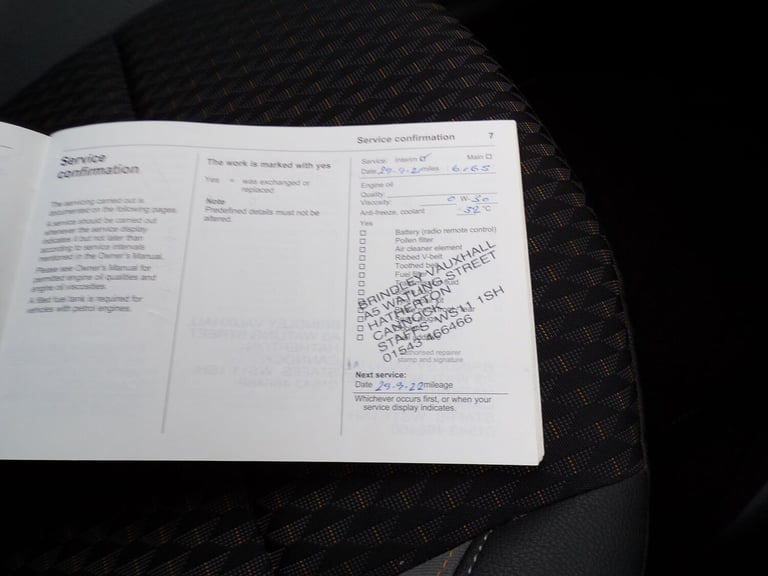 Service confirmation 7
Service
confirmation
The servicing carried out is
documented on the following pages.
A service should be carried out
whenever the service display
indicates it but not later than
according to service intervals
mentioned in the Owner's Manual.
Please see Owner's Manual for
permitted engine oil qualities and
engine oil viscosities.
A filled fuel tank is required for
vehicles with petrol engines.
The work is marked with yes
Yes = was exchanged or
replaced
Note
Predefined details must not be
altered.
Service: Interim Main
Date miles 6065
Engine oil
Quality:
Viscosity: 0 W-30
Anti-freeze, coolant -32 °C
Yes
Battery (radio remote control)
Pollen filter
Air cleaner element
Ribbed V-belt
Toothed belt
Fuel
fluid
BRINDLEY VAUXHALL
A5 WATLING STREET
HATHERTON
CANNOCK
STAFFS WS11 1SH
01543 466466
Authorised repairer
stamp and signature
Next service:
Date 29-9-22 mileage
Whichever occurs first, or when your
service display indicates.